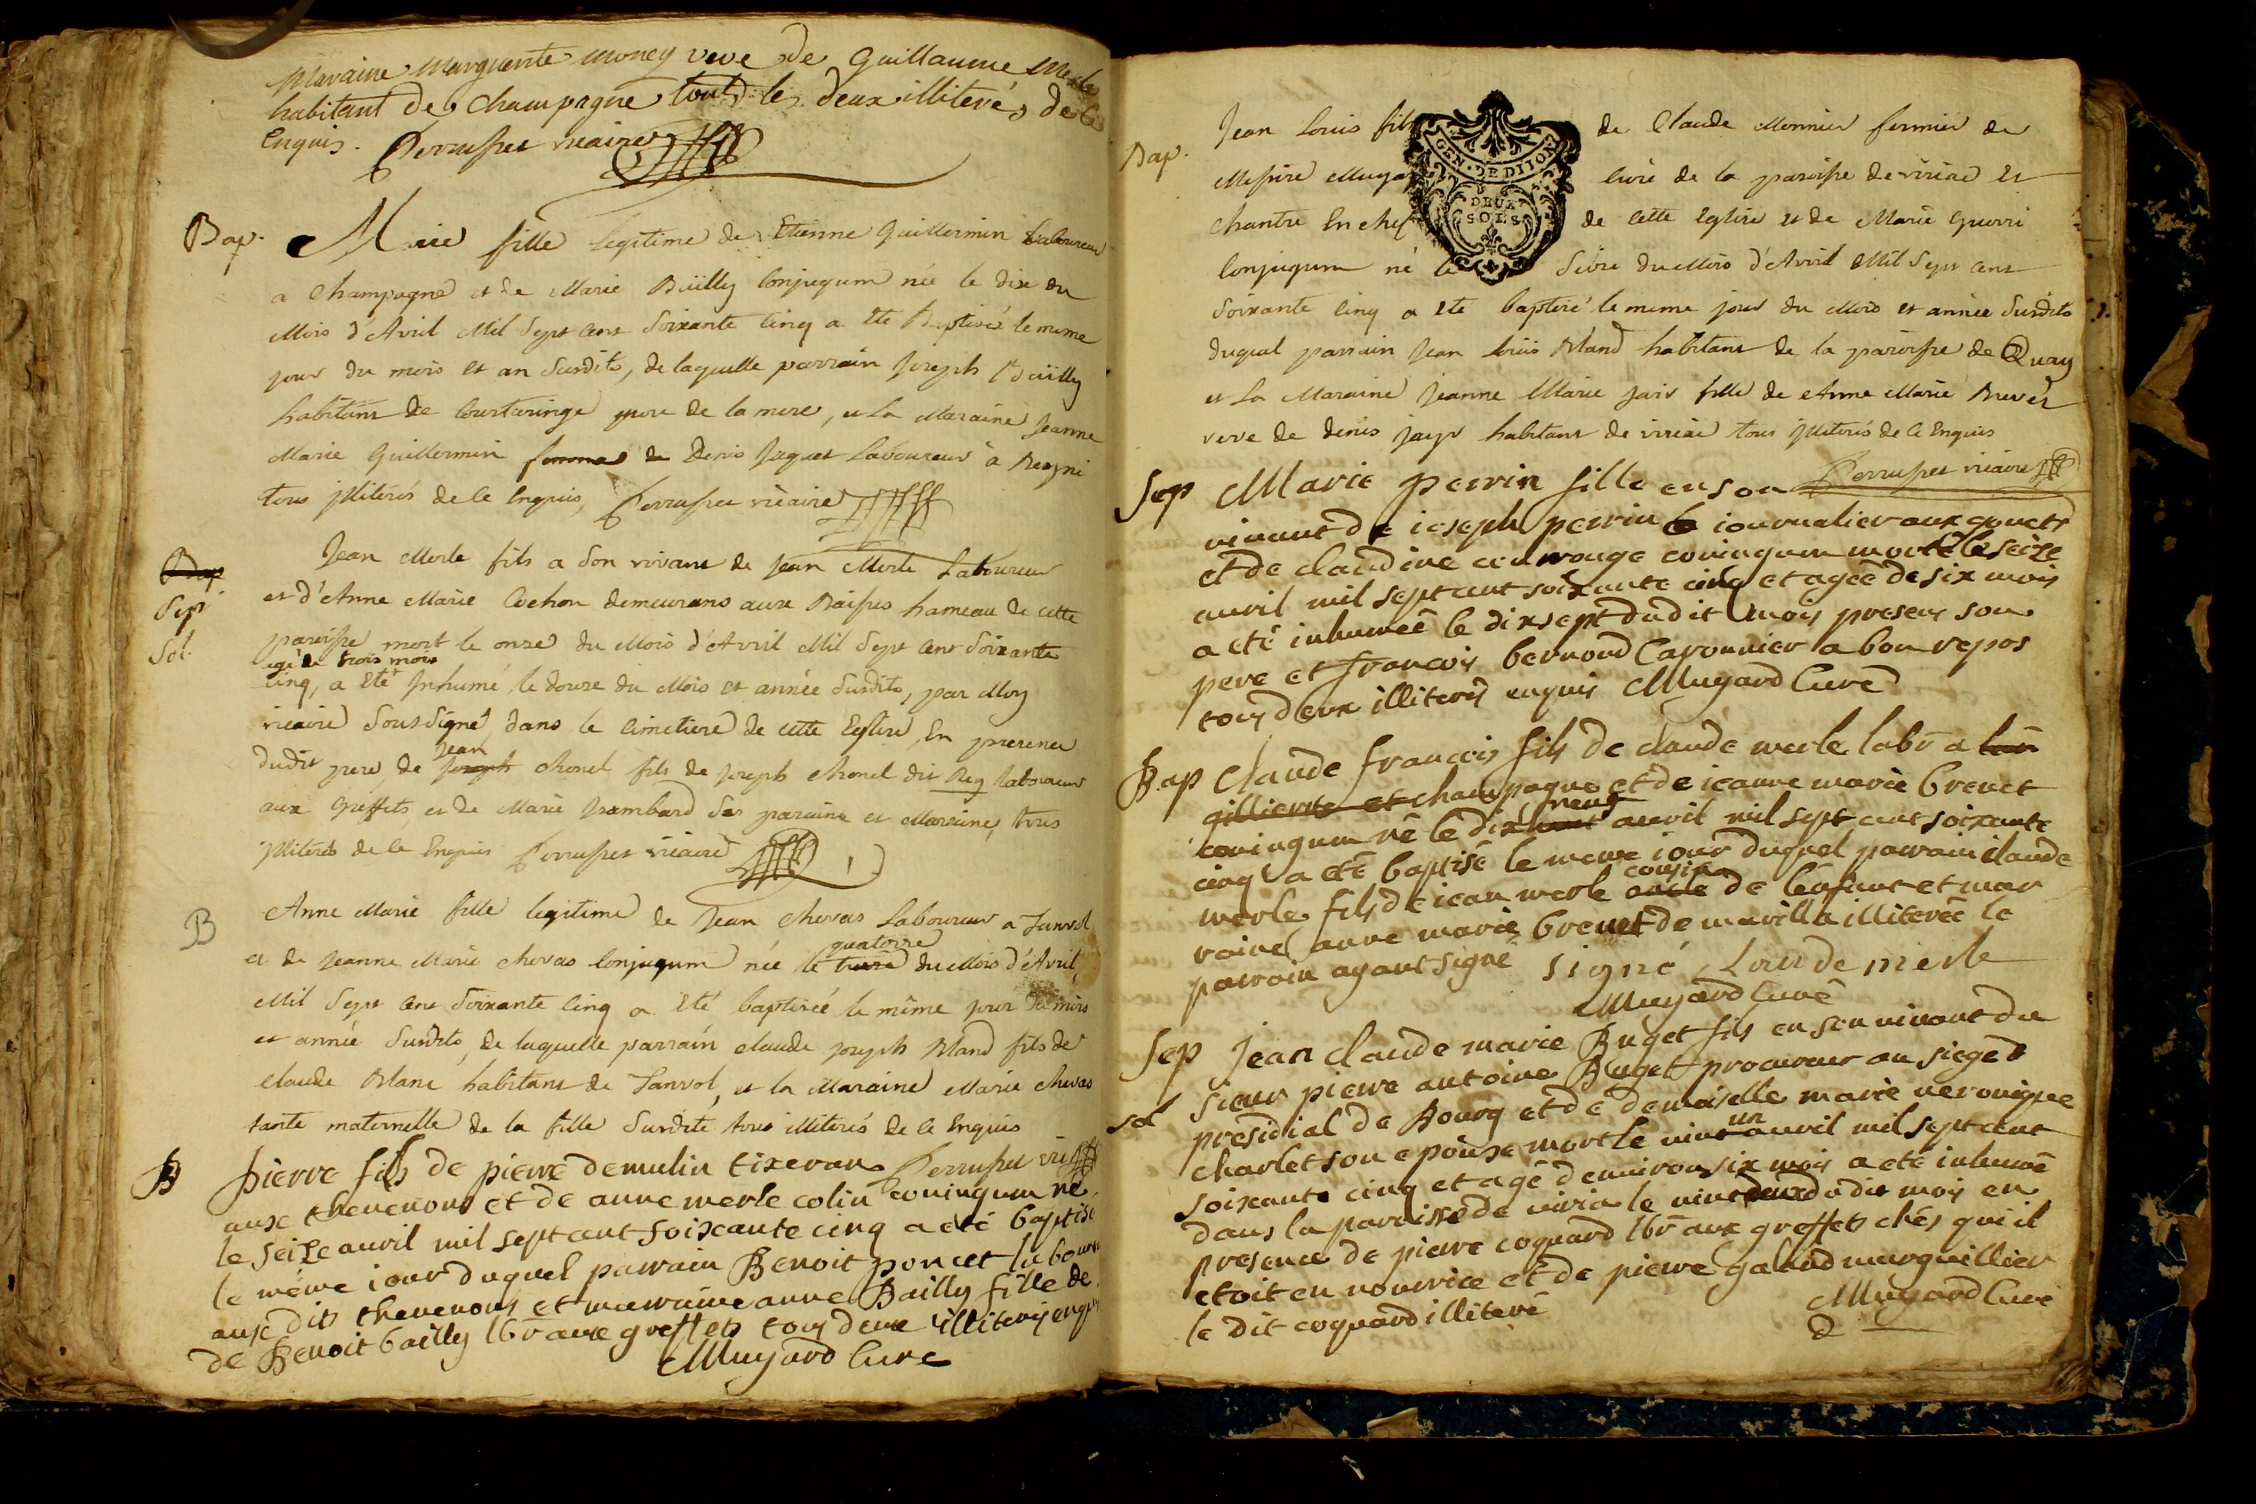 Maraine Marguerite Money veve de Guillaume Merle
habitant de Champagne tout les deux illiterés de ce
Enquis. Perruset vicaire
Bap.
Marie fille legitime de Etienne Guillermin Laboureur
a Champagne et de Marie Büilly Conjugum née le dix du
Mois d'Avril Mil Sept cent Soixante Cinq a Eté Baptiseé le meme
jour du mois et an Susdits, de laquelle parrain Joseph Büilly
habitant de Courtaringe pere de la mere, et la Maraine Jeanne
Marie Guillermin femme de Denis Jaquet Laboureur à
tous jlliterés de Ce Enquis, Perruset vicaire
Bap
Sep
Sol.
Jean Merle fils a Son vivant de Jean Merle Laboureur
et d'Anne Marie Cochon demeurans aux hameau de cette
paroisse mort le onze du Mois d'Avril Mil Sept Cent Soixante
agé de trois mois
Cinq, a Eté Jnhumé le douze du Mois et année Susdits, par Moy
vicaire Soussigné dans le Cimetiere de cette Eglise, En presence
Jean
dudit pere, de Joseph Chonel fils de Joseph Chonel dit Rey laboureur
aux Greffets et de Marie Jsambard Ses paraine et Maraine, tous
jlliterés de Ce Enquis Perruset vicaire
B
Anne Marie fille legitime de Jean Chevas Laboureur a Tanvol
quatorze
et de Jeanne Marie Chevas Conjugum née le treize du Mois d'Avril
Mil Sept Cent Soixante Cinq a Eté baptiseé le même jour du mois
et année Susdits, de laquelle parrain Claude Joseph Bland fils de
Claude Blanc habitant de Tanvol, et la Maraine Marie Chevas
tante maternelle de la fille Susdite tous illiterés de Ce Enquis
Perruset
B
Pierre fils de pierre demulin tixeran
aux thevenons et de anne merle colin coniugum né
le seize auvril mil sept cent soixante cinq a eté baptisé
le même iour duquel parrain Benoit poncet labour
aux dits thevenons et marraine anne Bailly fille de
de Benoit bailly lbr aux greffets tous deux illiterés enquis
Mugard Curé
GEN. DE DIION
DEUX
SOLS
Bap.
Jean Louis fils de Claude Monnier fermier de
Messire Muga Curé de la paroisse de viriac Et
Chantre En chef de cette Eglise et de Marie Guerri
Conjugum né le Seize du Mois d'Avril Mil Sept Cent
Soixante Cinq a Eté baptisé le meme jour du Mois et année Susdits
duquel parrain Jean Loüis Bland habitant de la paroisse de
et La Maraine Jeanne Marie fille de Anne Marie Brevet
veve de denis habitant de viriac tous jlliterés de Ce Enquis
Perruset vicaire
Sep
Marie perrin fille en son
vivant de ioseph perrin iournalier aux
et de claudine coniugum morte le seize
auvril mil sept cent soixante cinq et ageê de six mois
a eté inhumeê le dixsept dudit mois presens son
pere et francois bernard Caronnier a bon repos
tous deux illiterés enquis Mugard Curé
Bap
Claude francois fils de claude merle labr a
et champagne et de ieanne marie brevet
neuf
coniugum né le dixhuit auvril mil sept cent soixante
cinq a eté baptisé le meme iour duquel parrain claude
cousin
merle fils de iean merle oncle de lenfant et mar
raine anne marie brevet de marilla illitereê le
parrain ayant signé signé Lour de merle
Mugard Curé
Sep
sol
Jean claude marie Buget fils en son vivant du
sieur pierre antoine Buget procureur au siege
presidial de Bourg et de demoiselle marie veronique
un
charlet son epouse mort le vint auvril mil sept cent
soixante cinq et agé denviron six mois a eté inhumé
dans la paroisse de viria le vint deux dudit mois en
presence de pierre coquard lbr aux greffets chés qui il
etoit en nourrice et de pierre galand marguillier
le dit coquard illiteré
Mugard Curé